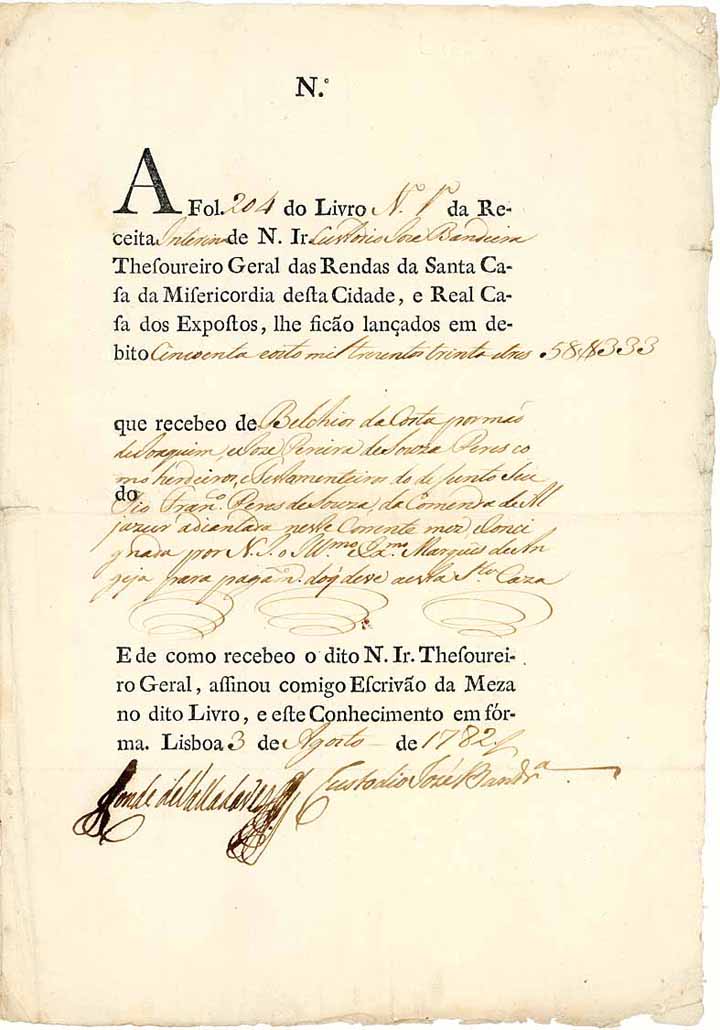 N.º
A Fol. 204 do Livro N.º 1º da Re-
ceita Interina de N. Ir. Custodio Joze Bandeira
Theſoureiro Geral das Rendas da Santa Ca-
ſa da Miſericordia deſta Cidade, e Real Ca-
ſa dos Expoſtos, lhe ficão lançados em de-
bito Cincoenta eoito mil trezentos trinta etres 58$333
que recebeo de Belchior da Costa por mão
de Joaquim, e Joze Pereira de Souza Peres co
mo herdeiros, e Testamenteiros do defunto Seu
do Tio Fran.co Peres de Souza, da Comenda de Al
jazur adiantada neste Corrente mez, e Conci
gnada por N. I. o Ill.mo e Ex.mo Marques de An
geja para pagam.to do q̃ deve a esta S.ta Caza
E de como recebeo o dito N. Ir. Theſourei-
ro Geral, aſſinou comigo Eſcrivão da Meza
no dito Livro, e eſte Conhecimento em fór-
ma. Lisboa 3 de Agosto de 1782
Conde de Valladares Custodio José Band.ra